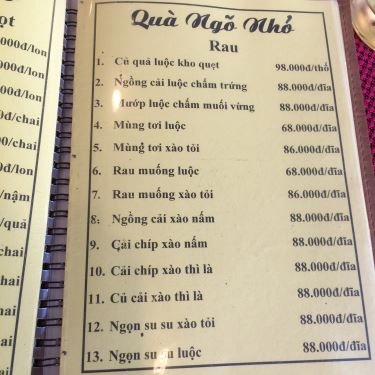 ọt
000đ/lon
000đ/lon
000đ/lon
đ/chai
00/chai
đ/lon
/nậm
/quả
chai
/chai
/chai
chai
Quà Ngõ Nhỏ
Rau
1. Củ quả luộc kho quẹt 98.000đ/thố
2. Ngồng cải luộc chấm trứng 88.000đ/đĩa
3. Mướp luộc chấm muối vừng 88.000đ/đĩa
4. Mùng tơi luộc 68.000đ/đĩa
5. Mùng tơi xào tỏi 86.000đ/đĩa
6. Rau muống luộc 68.000đ/đĩa
7. Rau muống xào tỏi 86.000đ/đĩa
8. Ngồng cải xào nấm 88.000đ/đĩa
9. Cải chíp xào nấm 88.000đ/đĩa
10. Cải chíp xào thì là 88.000đ/đĩa
11. Củ cải xào thì là 88.000đ/đĩa
12. Ngọn su su xào tỏi 88.000đ/đĩa
13. Ngọn su su luộc 88.000đ/đĩa